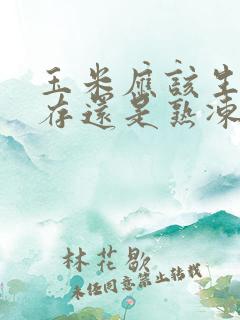 玉米應該生
存還是熟凍
林花歇
未經同意禁止轉載